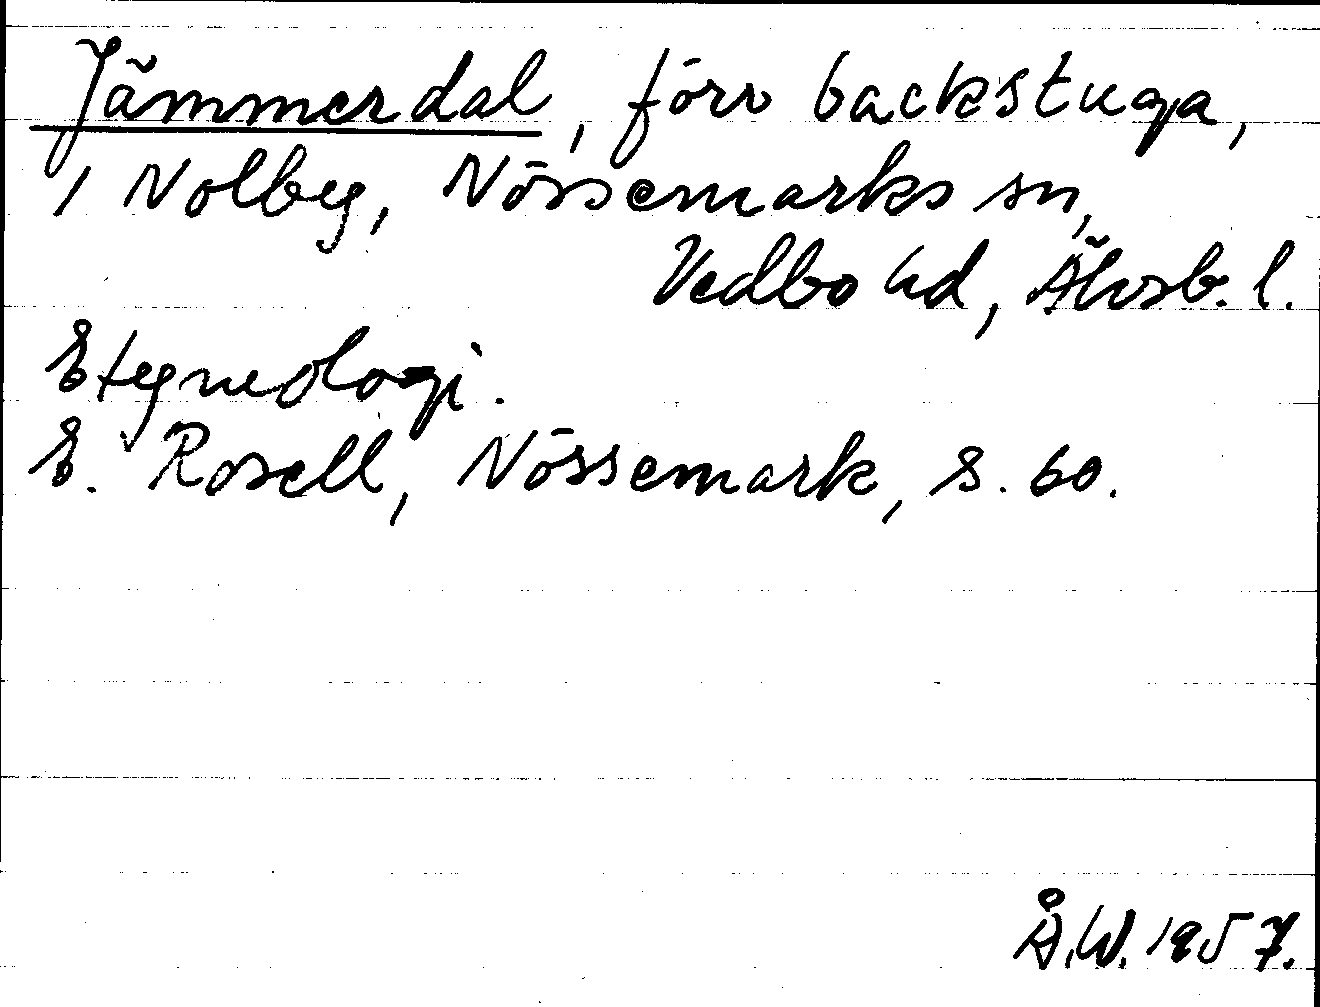 Jämmerdal, förr backstuga,
i Nolbyg, Nössemarks sn,
Vedbo hd, Älvsb. l.
Etymologi.
E. Rosell, Nössemark, s. 60.
Å.W. 1957.